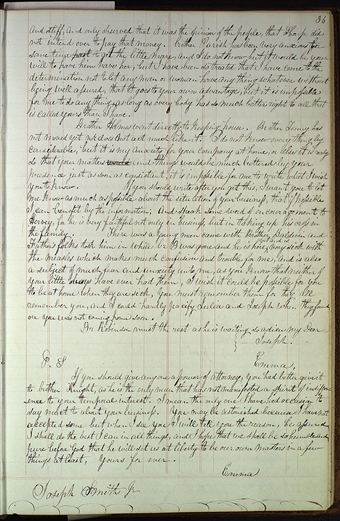 36
and stiff, and only observed that it was the opinion of the people, that Sharp did
not intend ever to pay that money. Brother Parish has been very anxious for
some time past to get the little mare, and I do not know but it would be your
will to have him have her, but I have been so treated that I have come to the
determination not to let any man or woman have any thing whatever without
being well assured, that it goes to your own advantage, but it is impossible
for me to do any thing, as long as every body has so much better right to all that
is called yours than I have.
Brother Robinson went directly to keeping house. Mother Smith has
not moved yet nor does she act much like it. I do not know every thing by
considerable, but it is my anxiety for your company at home, is
so that your matters and things would be much bettered by your
presence just as soon as consistent, it is impossible for me to write what I want
you to know. If you should write after you get this, I want you to let
me know as much as possible about the situation of your business, that if possible
I can benefit by the information, and speak some kind of encouragement to
, for he is very faithful not only in business, but in taking up cross in
the family. There was a young man came with Brother Davidson, and
Fathers folks took him in while br D was gone and he is here very sick with
the measles which makes much confusion and trouble for me, and is also
a subject of much fear and anxiety unto me, as you know that neither of
your little boys have ever had them, I wish it could be possible for you
to be at home when they are sick, you must remember them for they all
remember you, and I could hardly pacify Julia and Joseph when they found
out you was not coming home soon.
Dr Robinson must the rest as he is waiting so adieu my Dear
Joseph.
P. S. Emma,
If you should give any one a power of attorney, you had better give it
to brother Knight, as he is the only man that has not manifested a spirit of indiffer-
ence to your temporal interest. I mean the only one I have had occasion to
say much to about your business. You may be astonished because I have not
excepted some but when I see you I will tell you the reason, be assured
I shall do the best I can in all things, and I hope that we shall be so humble and
pure before God that he will set us at liberty to be our own masters in a few
things at least, Yours for ever.
Emma
Joseph Smith Jr